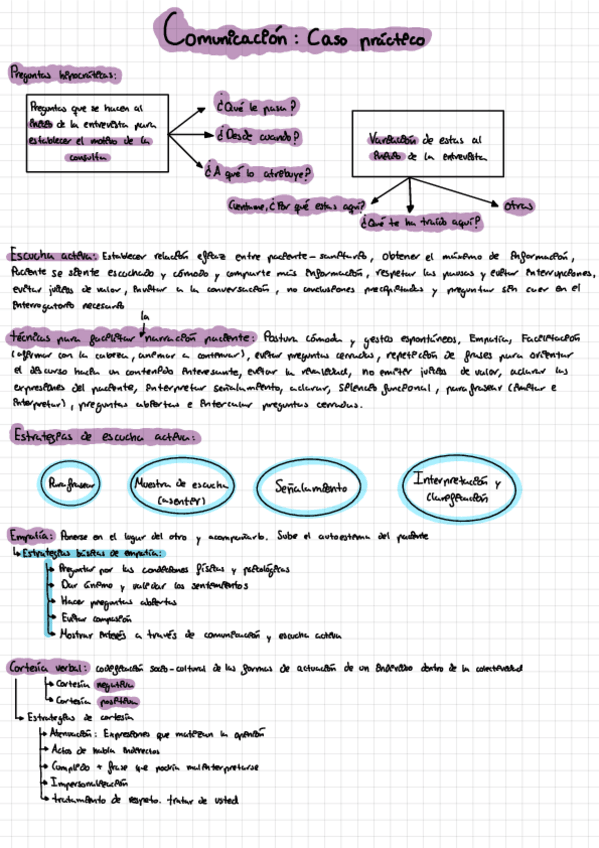 Comunicación: Caso práctico
Preguntas hipocráticas:
Preguntas que se hacen al
inicio de la entrevista para
establecer el motivo de la
consulta
¿Qué le pasa?
¿Desde cuando?
¿A qué lo atribuye?
Variación de estas al
inicio de la entrevista
Cuéntame, ¿Por qué estas aquí?
¿Qué te ha traído aquí?
otras
Escucha activa: Establecer relación eficaz entre paciente-sanitario, obtener el máximo de información,
Paciente se siente escuchado y cómodo y comparte más información, respetar las pausas y evitar interrupciones,
evitar juicios de valor, invitar a la conversación, no conclusiones precipitadas y preguntar sin caer en el
interrogatorio necesario
la
técnicas para facilitar narración paciente: Postura cómoda y gestos espontáneos, Empatía, Facilitación
(afirmar con la cabeza, animar a continuar), evitar preguntas cerradas, repetición de frases para orientar
el discurso hacia un contenido interesante, evitar la rivalidad, no emitir juicios de valor, aclarar las
expresiones del paciente, interpretar señalamiento, aclarar, silencio funcional, parafrasear (imitar e
interpretar), preguntas abiertas e intercalar preguntas cerradas.
Estrategias de escucha activa:
Parafrasear
Muestra de escucha
(asentir)
Señalamiento
Interpretación y
clarificación
Empatía: Ponerse en el lugar del otro y acompañarlo. Sube el autoestema del paciente
Estrategias básicas de empatía:
Preguntar por las condiciones físicas y psicológicas
Dar ánimo y validar los sentimientos
Hacer preguntas abiertas
Evitar compasión
Mostrar interés a través de comunicación y escucha activa
Cortesía verbal: codificación socio-cultural de las formas de actuación de un individuo dentro de la colectividad
Cortesía negativa
Cortesía positiva
Estrategias de cortesía
Atenuación: Expresiones que matizan la opinión
Actos de habla indirectos
Cumplido + frase que podría malinterpretarse
Impersonalización
tratamiento de respeto. tratar de usted